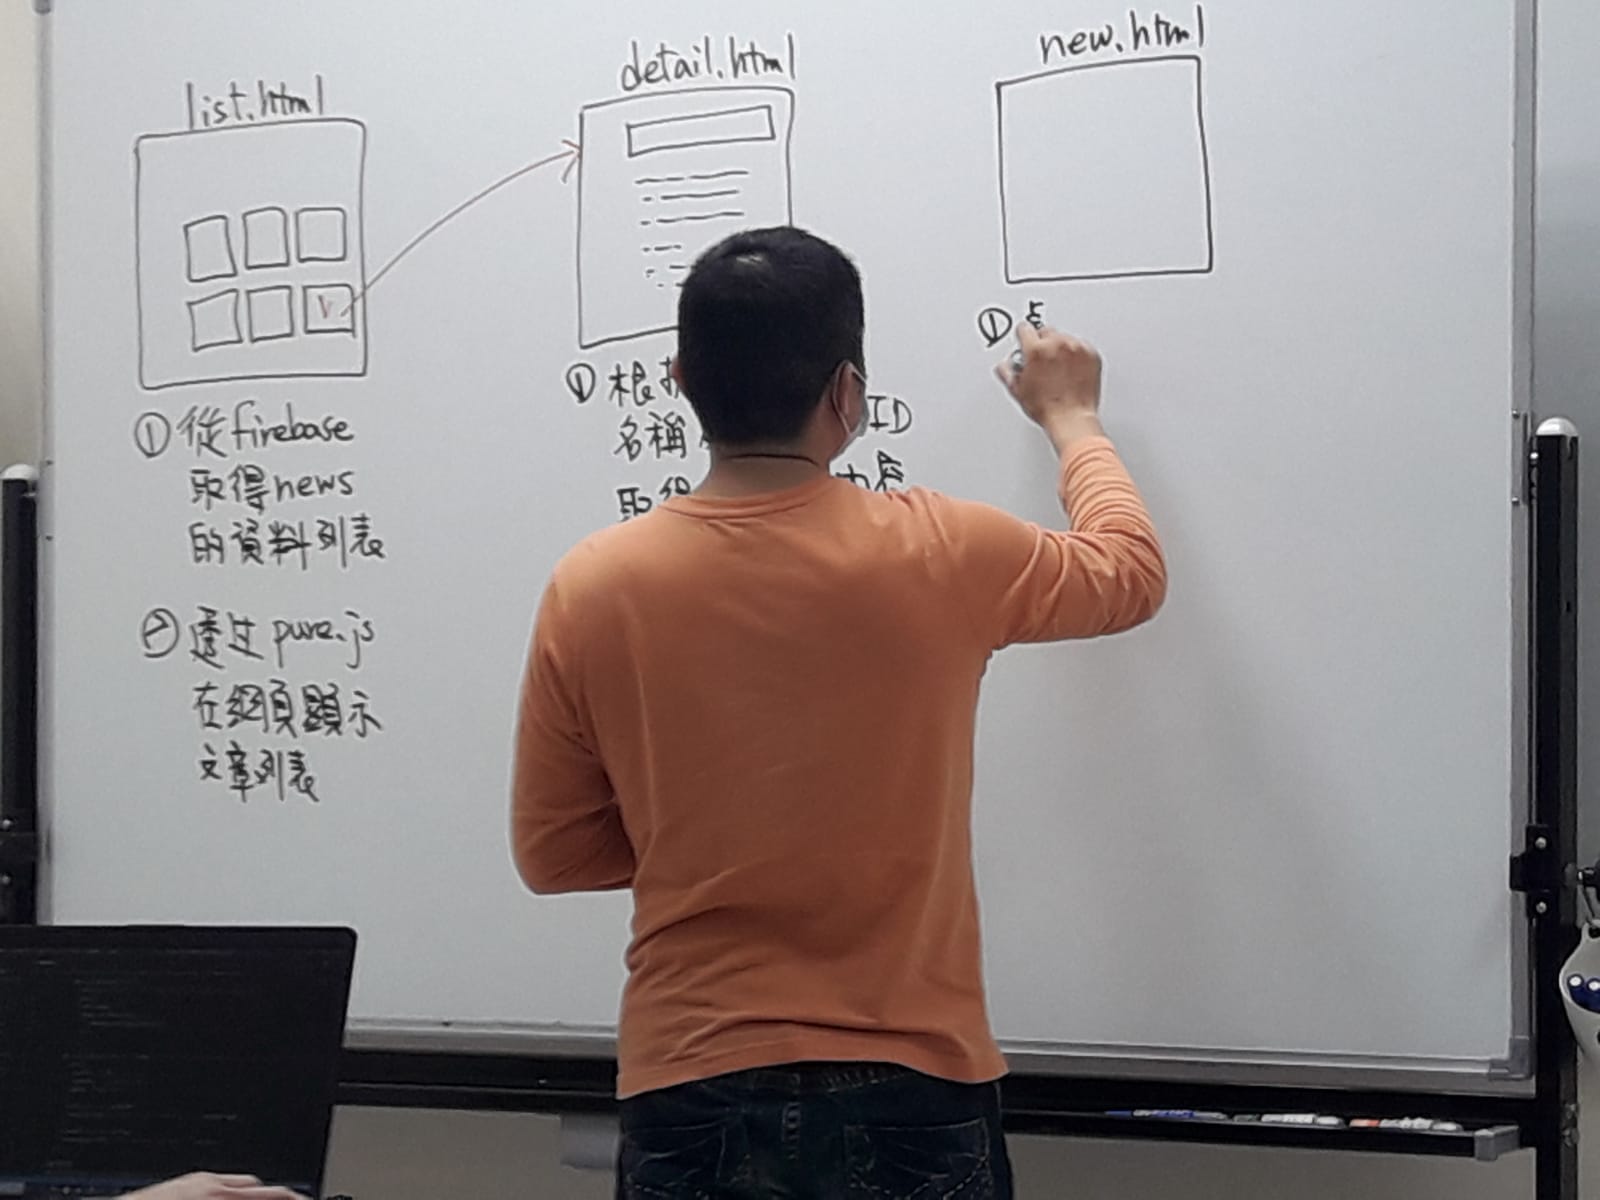 list.html
① 從firebase
取得news
的資料列表
② 透过 pure.js
在網頁顯示
文章列表
detail.html
① 根
名稱 ID
取得 內容
new.html
①